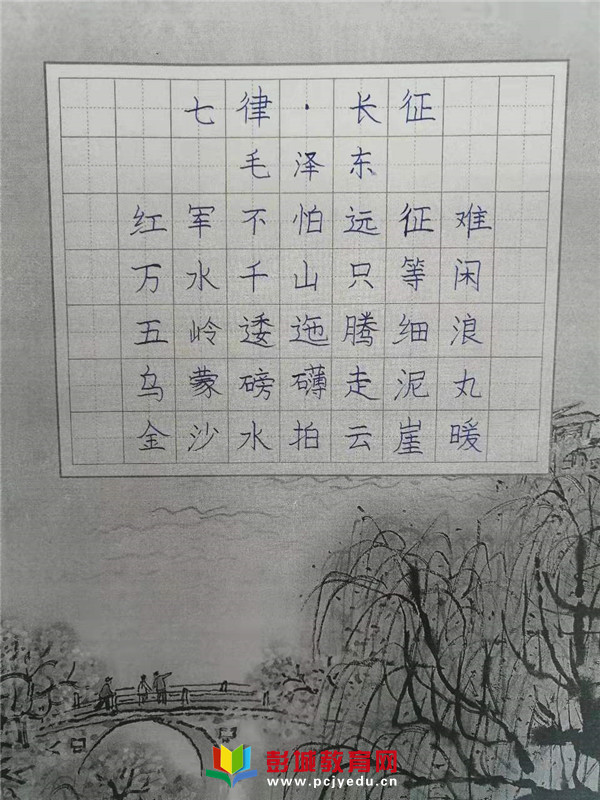 七律·长征
毛泽东
红军不怕远征难
万水千山只等闲
五岭逶迤腾细浪
乌蒙磅礴走泥丸
金沙水拍云崖暖
彭城教育网
www.pcjyedu.cn